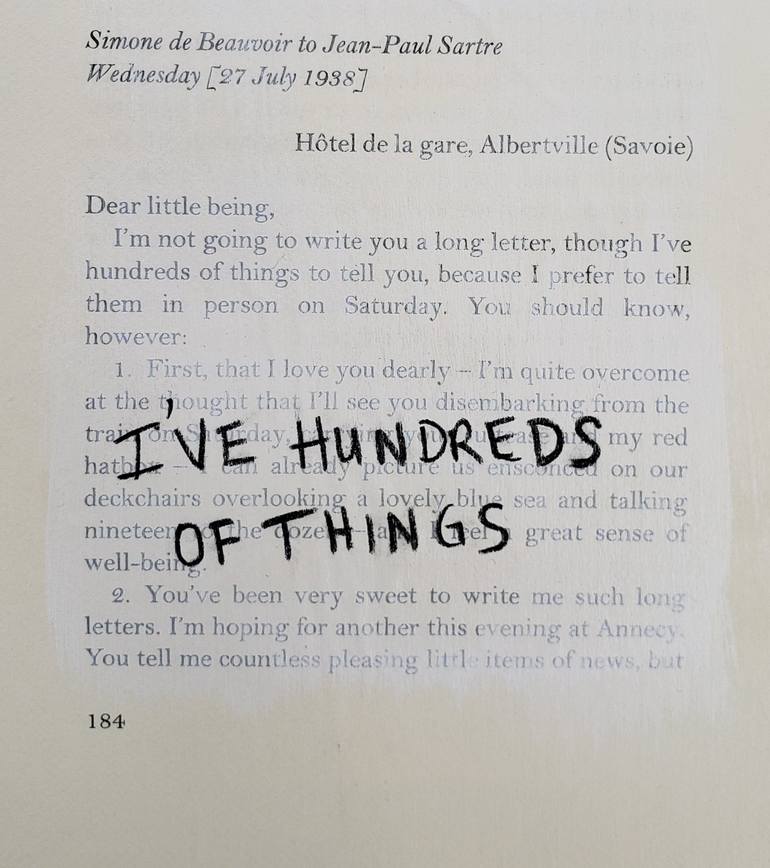 Simone de Beauvoir to Jean-Paul Sartre
Wednesday [27 July 1938]
Hôtel de la gare, Albertville (Savoie)
Dear little being,
I'm not going to write you a long letter, though I've
hundreds of things to tell you, because I prefer to tell
them in person on Saturday. You should know,
however:
1. First, that I love you dearly – I'm quite overcome
at the thought that I'll see you disembarking from the
train on Saturday, carrying your suitcase and my red
I'VE HUNDREDS
hatbox – I can already picture us ensconced on our
deckchairs overlooking a lovely blue sea and talking
nineteen to the dozen – and I feel a great sense of
OF THINGS
well-being.
2. You've been very sweet to write me such long
letters. I'm hoping for another this evening at Annecy.
You tell me countless pleasing little items of news, but
184